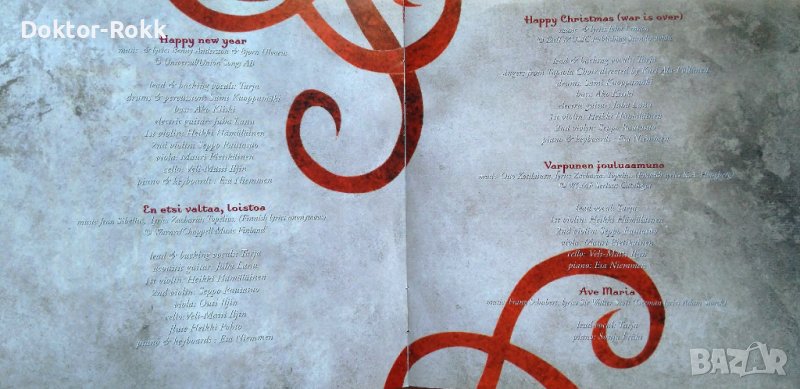 Doktor-Rokk
Happy new year
music & lyrics Benny Andersson & Bjorn Ulvaeus
© Universal/Union Songs Ab
lead & backing vocals: Tarja
drums & percussion: Sami Kuoppamäki
bass: Ako Kiiski
electric guitar: Juha Lanu
1st violin: Heikki Hämäläinen
2nd violin: Seppo Rautasuo
viola: Mauri Pietikäinen
cello: Veli-Matti Iljin
piano & keyboards: Esa Nieminen
En etsi valtaa, loistoa
music: Jean Sibelius, lyrics: Zacharias Topelius, (Finnish lyrics
© Warner/Chappell Music Finland
lead & backing vocals: Tarja
acoustic guitar: Juha Lanu
1st violin: Heikki Hämäläinen
2nd violin: Seppo Rautasuo
viola: Outi Iljin
cello: Veli-Matti Iljin
flute: Heikki Pohto
piano & keyboards: Esa Nieminen
Happy Christmas (war is over)
music & lyrics
lead & backing vocals: Tarja
singers from Tapiola Choir directed by Kari Ala-Pöllänen
drums: Sami Kuoppamäki
bass: Ako Kiiski
electric guitar: Juha Lanu
1st violin: Heikki Hämäläinen
2nd violin: Seppo Rautasuo
piano & keyboards: Esa Nieminen
Varpunen jouluaamuna
music: Otto Kotilainen, lyrics: Zacharias Topelius
lead vocal: Tarja
1st violin: Heikki Hämäläinen
2nd violin: Seppo Rautasuo
viola: Mauri Pietikäinen
cello: Veli-Matti Iljin
piano: Esa Nieminen
Ave Maria
music: Franz Schubert, lyrics: Sir Walter Scott (German lyrics Adam Storck)
lead vocal: Tarja
piano: Sonja
BAZAR
.bg